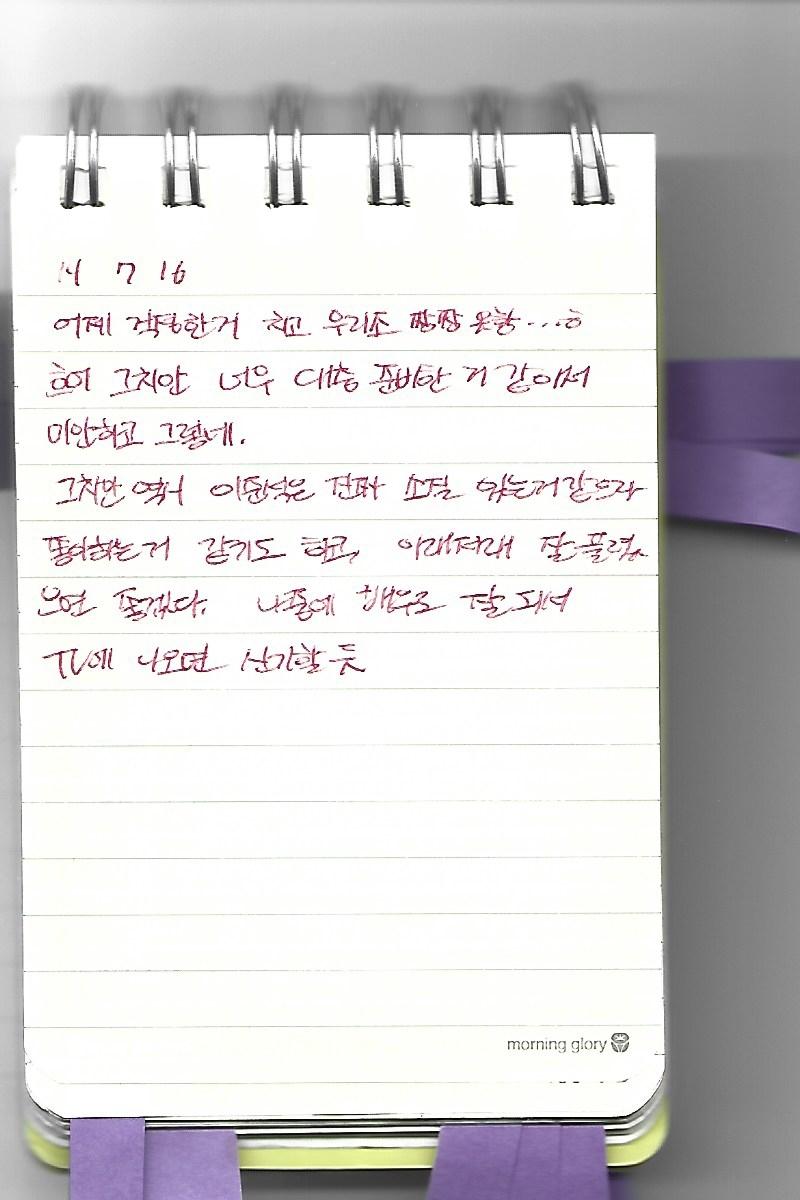 14 7 16
어제 걱정한거 치고 우리조 짱짱 잘함...ㅎ
그치만 너무 대충 준비한 거 같아서
미안하고 그렇네.
그치만 역시 이준석은 진짜 소질 있는거같으다
좋아하는거 같기도 하고, 이래저래 잘 풀렸
으면 좋겠다. 나중에 배우로 잘 돼서
TV에 나오면 신기할 듯
morning glory